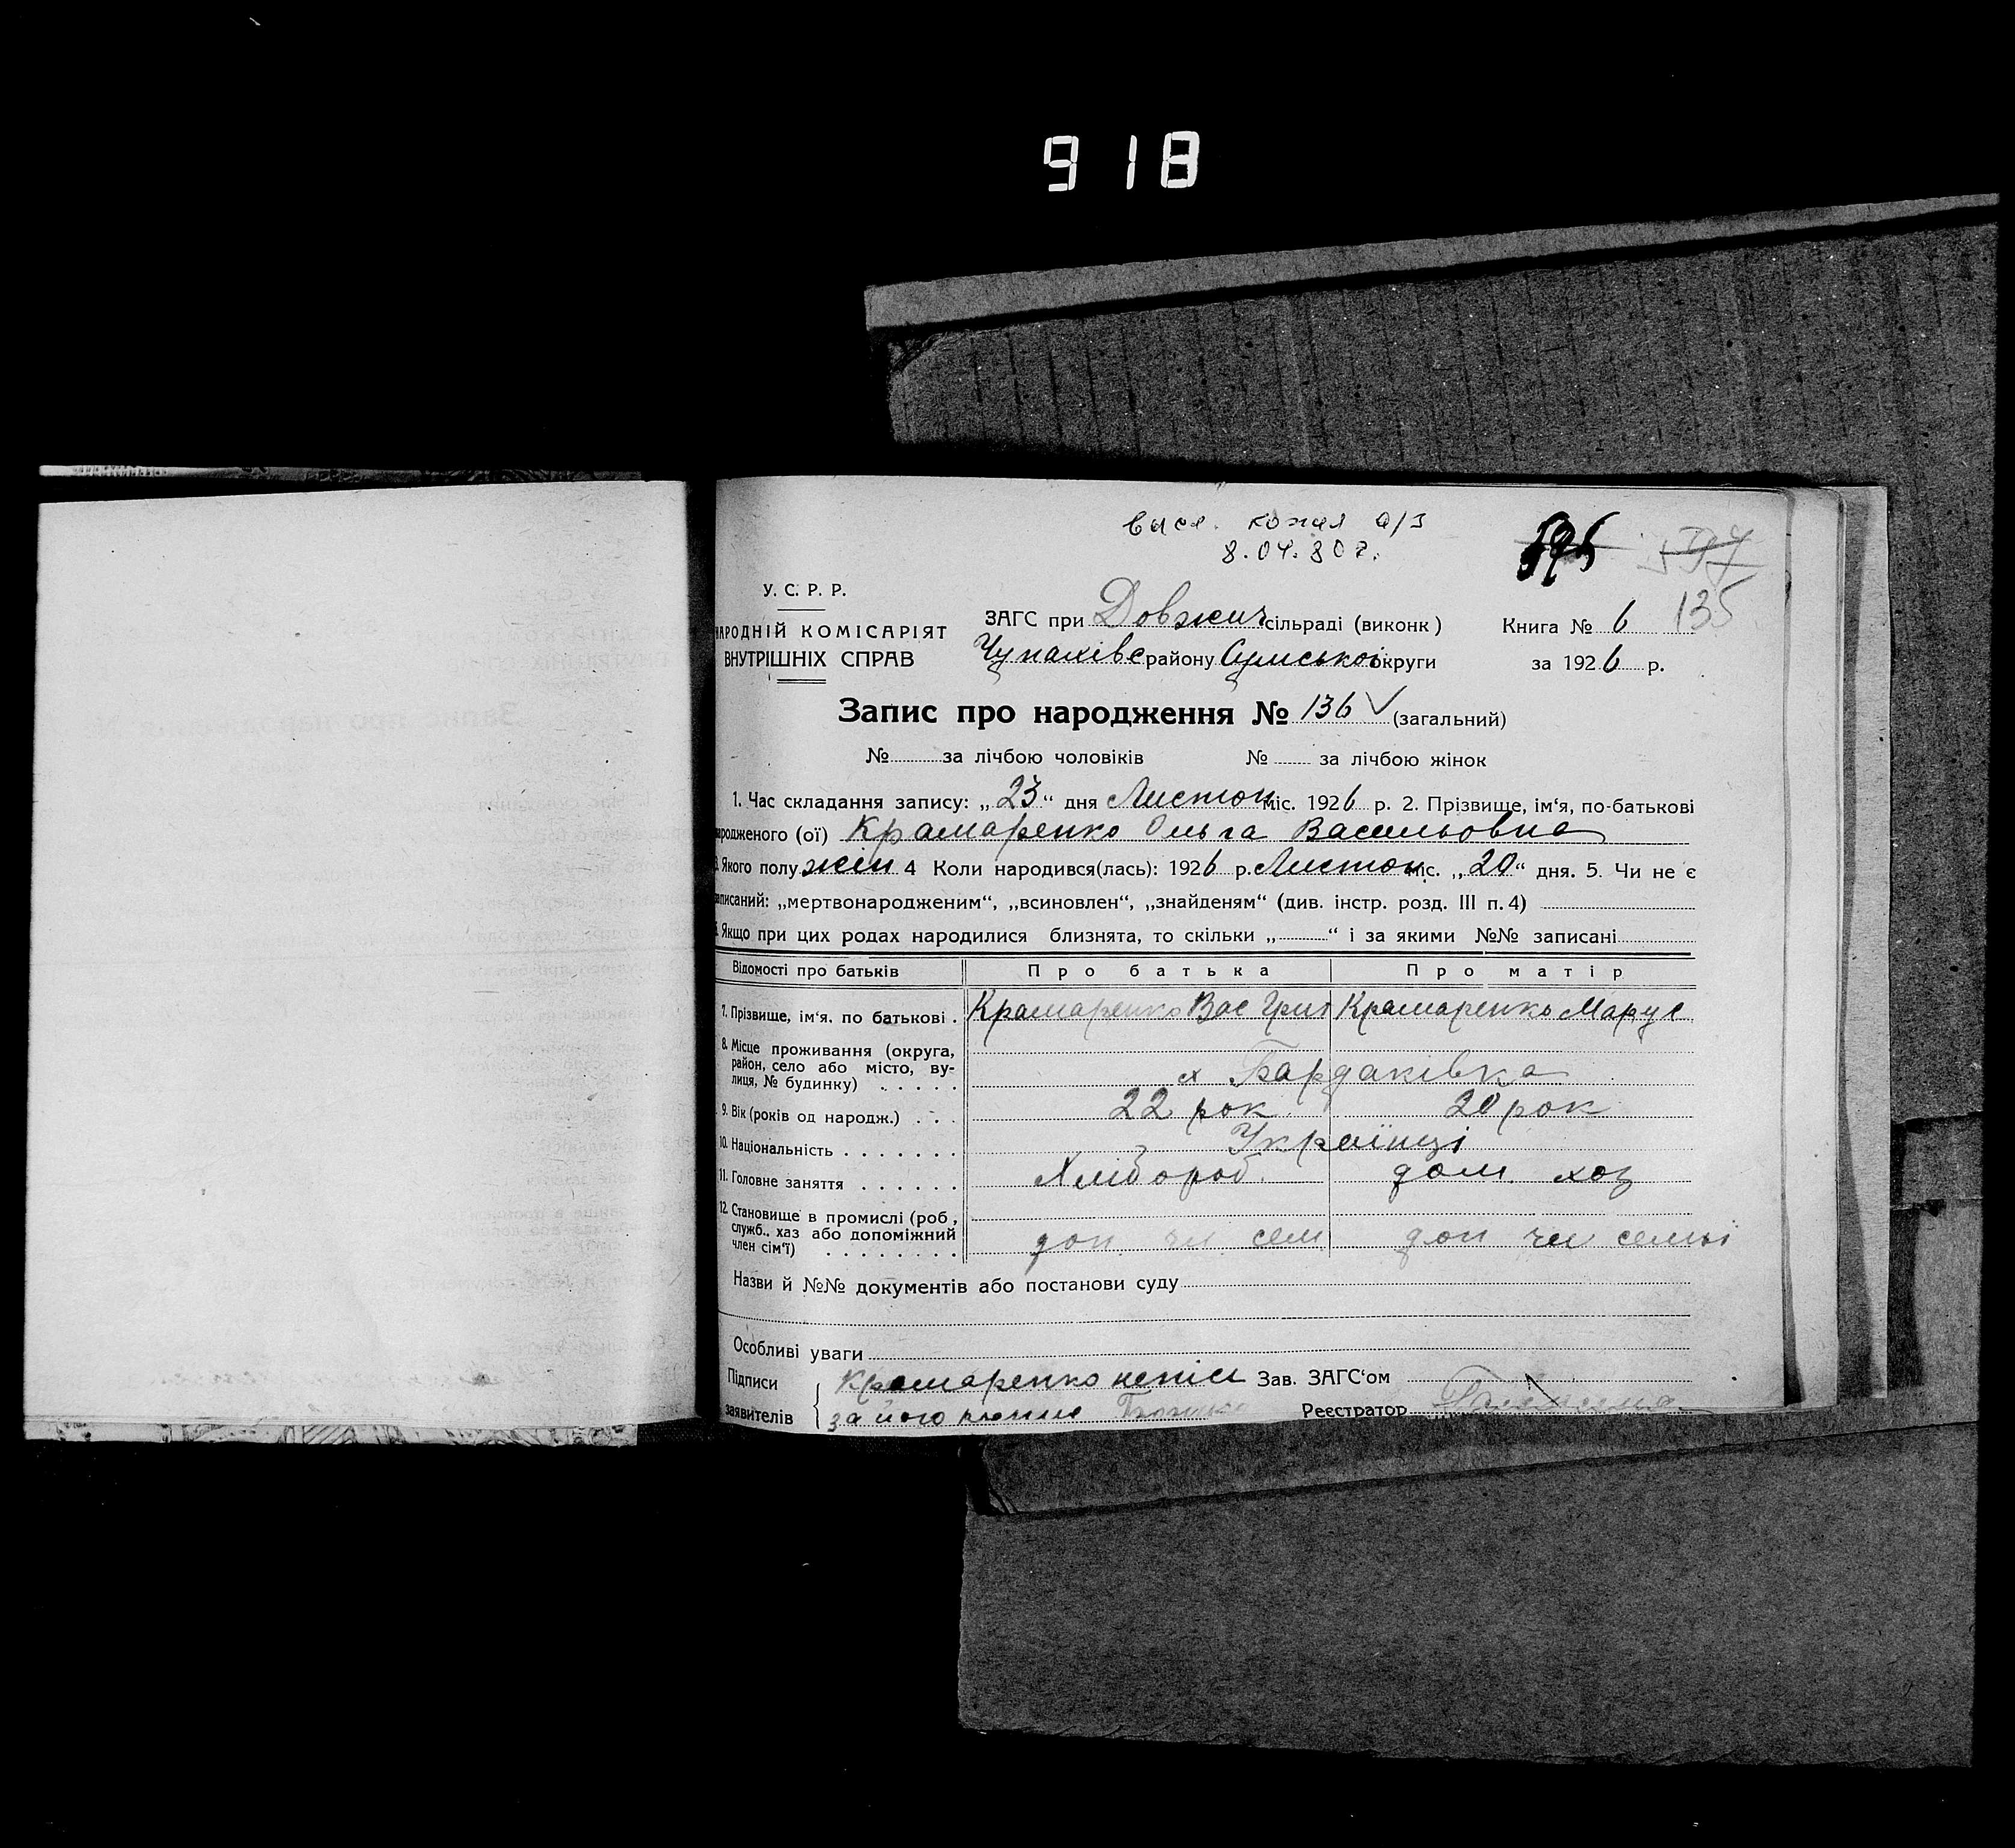 918
выся. копия а/з
8.04.80 г.
135
У. С. Р. Р.
НАРОДНІЙ КОМІСАРІЯТ
ВНУТРІШНІХ СПРАВ
ЗАГС при Довжич сільраді (виконк)
Чупахівс району Сумської округи
Книга № 6
за 1926 р.
Запис про народження № 136 (загальний)
№ за лічбою чоловіків № за лічбою жінок
1. Час складання запису: „23“ дня Листоп міс. 1926 р. 2. Прізвище, ім‘я, по-батькові
народженого (ої) Крамаренко Ольга Васильовна
3. Якого полу жін 4 Коли народився(лась): 1926 р. Листоп міс. „20“ дня. 5. Чи не є
записаний: „мертвонародженим“, „всиновлен“, „знайденям“ (див. інстр. розд. III п. 4)
. Якщо при цих родах народилися близнята, то скільки „ “ і за якими №№ записані
Відомості про батьків Про батька Про матір
7. Прізвище, ім‘я. по батькові . Крамаренко Вас Григ Крамаренко Марус
8. Місце проживання (округа,
район, село або місто, ву-
лиця, № будинку) . . . . . х Бардаківка
9. Вік (років од народж.) . . . 22 рок. 20 рок
10. Національність . . . . . . . Українці
11. Головне заняття . . . . . . Хлібороб. дом. хоз
12. Становище в промислі (роб,
служб.. хаз або допоміжний
член сім‘ї) . . . . . . . . доп. чл. сем доп чл семьі
Назви й №№ документів або постанови суду
Особливі уваги
Підписи
заявителів
Крамаренко непісм
за його
Зав. ЗАГС‘ом
Реєстратор